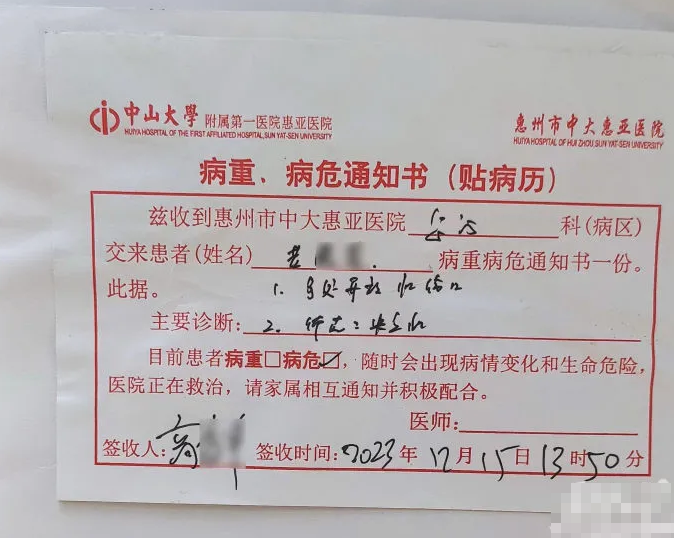 中山大學 附属第一医院惠亚医院
HUIYA HOSPITAL OF THE FIRST AFFILIATED HOSPITAL,SUN YAT-SEN UNIVERSITY
惠州市中大惠亚医院
HUIYA HOSPITAL OF HUI ZHOU,SUN YAT-SEN UNIVERSITY
病重、病危通知书（贴病历）
兹收到惠州市中大惠亚医院 急诊 科(病区)
交来患者(姓名) 病重病危通知书一份。
此据。 1. 多处开放性伤口
主要诊断: 2.
目前患者病重□病危☑，随时会出现病情变化和生命危险，
医院正在救治，请家属相互通知并积极配合。
医师:
签收人: 签收时间:2023年12月15日13时50分